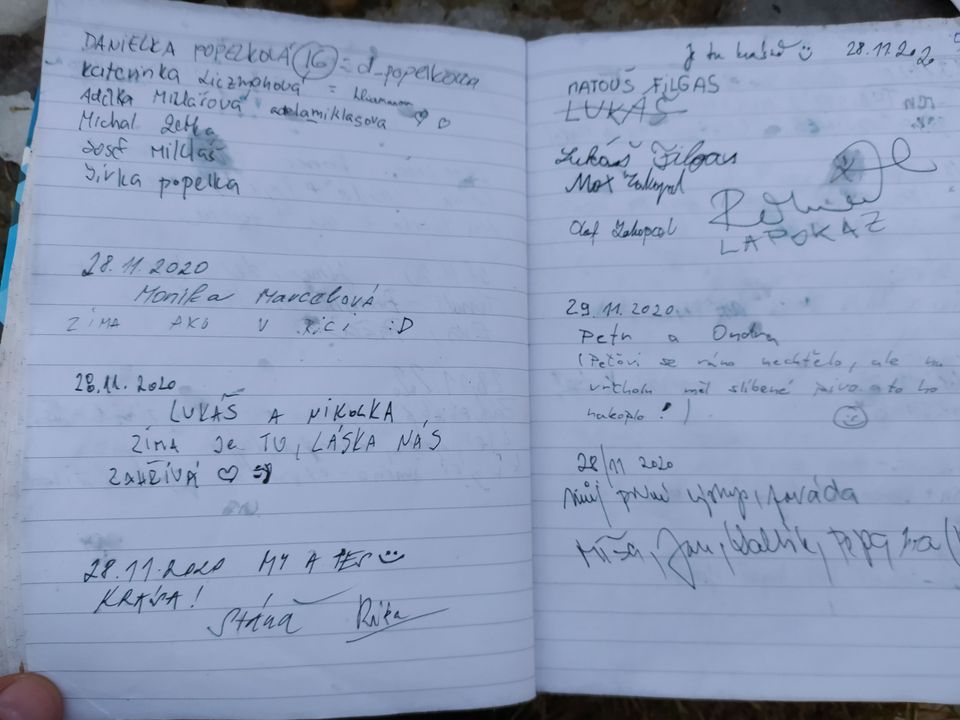 DANIELKA POPELKOVÁ (16) = d_popelkova
Katerinka Liczmonová =
Adélka Miklašová adelamiklasova ♡ ♡
Michal
Josef Mikláš
Jirka popelka
28.11.2020
Monika Marcelová
ZIMA AKO V RICI :D
28.11.2020
LUKÁŠ A NIKOLKA
ZIMA JE TU, LÁSKA NÁS
ZAHŘÍVÁ ♡
28.11.2020 MY A PES
KRÁSA!
Stáňa
je tu krásně 28.11.2020
MATOUŠ FILGAS
LUKÁŠ
Lukáš Filgas
Max Zakopal
Olaf Zakopal
LAPOKAZ
29.11.2020
Petr a Ondra
(Peťovi se ráno nechtělo, ale na
vrcholu měl slíbené pivo a to ho
nakoplo!)
28/11 2020
Můj první výstup, paráda
Míša, Jan,